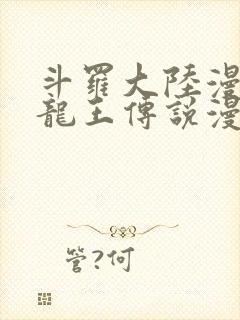 斗羅大陸漫
龍王傳説漫
管?何